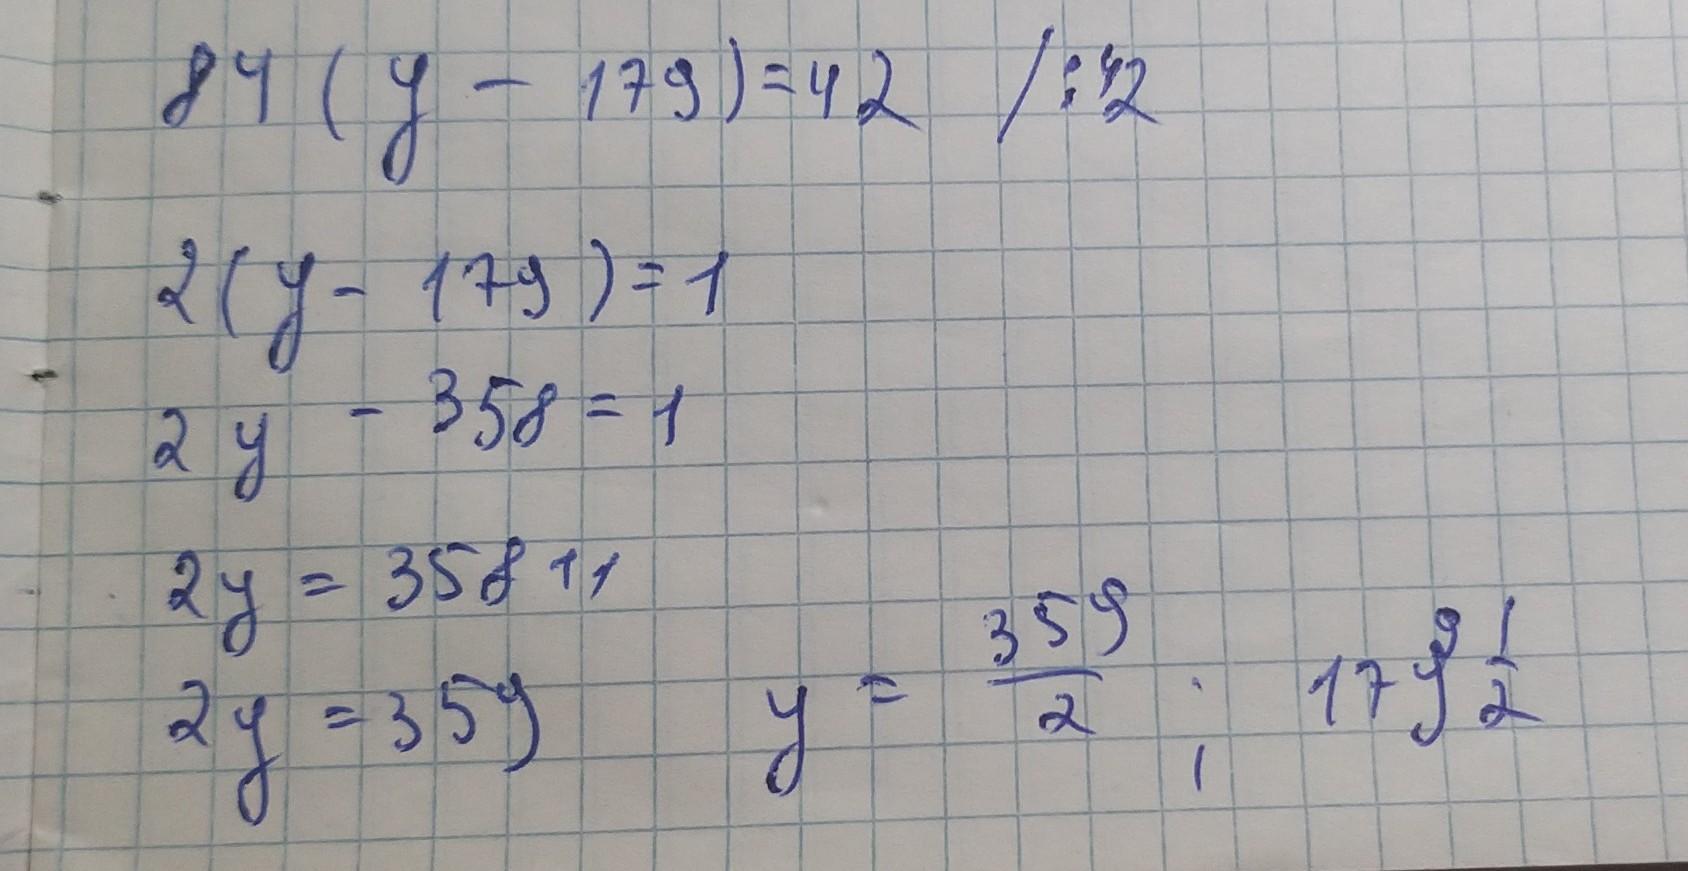 84 ( y - 179 ) = 42 / : 42
2 ( y - 179 ) = 1
2y - 358 = 1
2y = 358 + 1
2y = 359 y = 359/2 ; 179 1/2